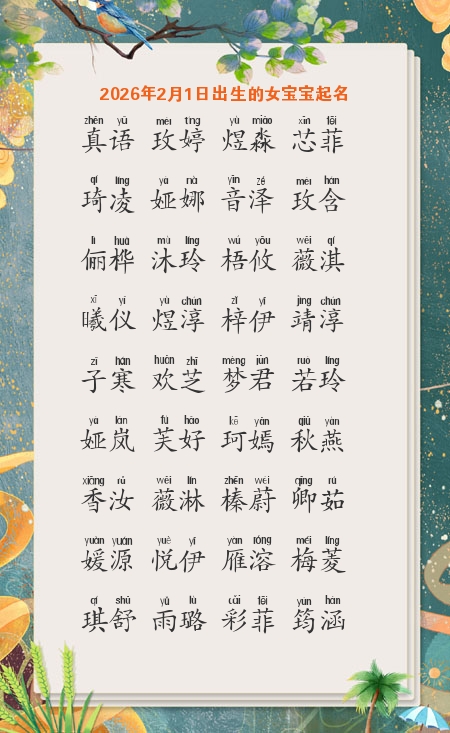 2026年2月1日出生的女宝宝起名
zhēn yǔ méi tíng yù miǎo xīn fēi
真语 玫婷 煜淼 芯菲
qí líng yà nà yīn zé méi hán
琦凌 娅娜 音泽 玫含
lì huà mù líng wú yōu wēi qí
俪桦 沐玲 梧攸 薇淇
xī yí yù chún zǐ yī jìng chún
曦仪 煜淳 梓伊 靖淳
zǐ hán huān zhī mèng jūn ruò líng
子寒 欢芝 梦君 若玲
yà lán fú hǎo kē yān qiū yàn
娅岚 芙好 珂嫣 秋燕
xiāng rǔ wēi lín zhēn wèi qīng rú
香汝 薇淋 榛蔚 卿茹
yuàn yuán yuè yī yàn róng méi líng
媛源 悦伊 雁溶 梅菱
qí shū yǔ lù cǎi fēi yún hán
琪舒 雨璐 彩菲 筠涵